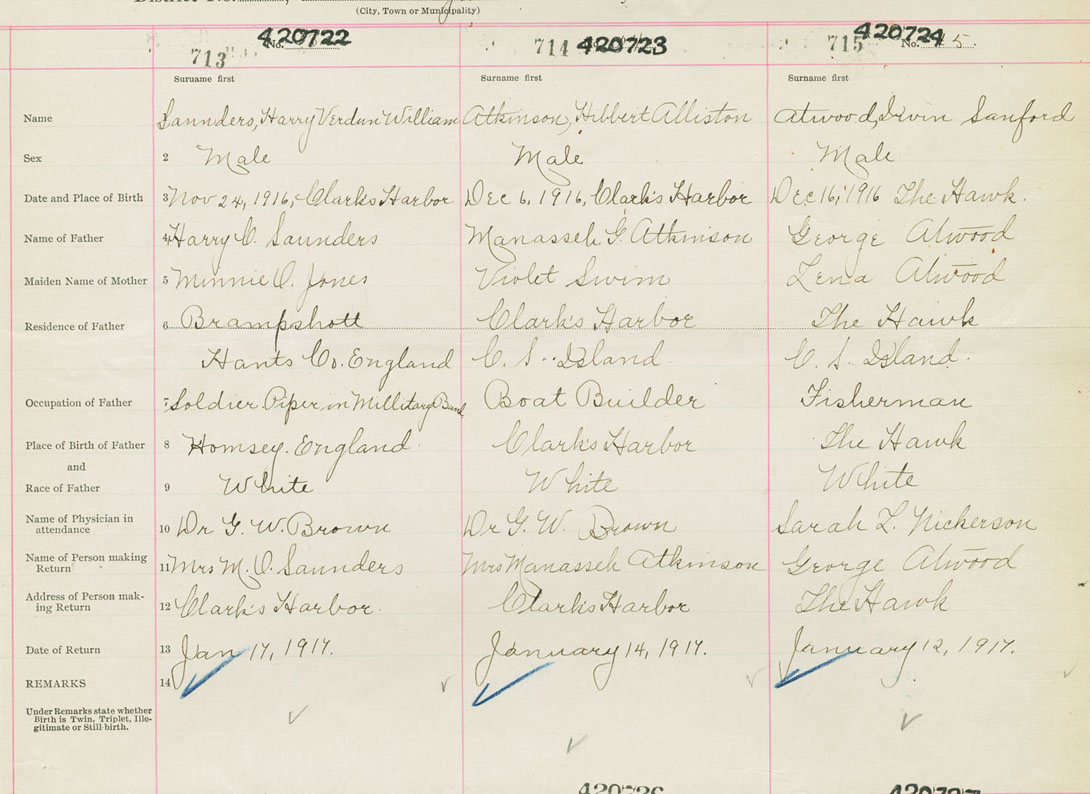 (City, Town or Municipality)
713 No. 420722 714 420723 715 No. 420724 5.
Surname first Surname first Surname first
Name Saunders, Harry Verdun William Atkinson, Hibbert Alliston Atwood, Irvin Sanford
Sex 2 Male Male Male
Date and Place of Birth 3 Nov 24, 1916, Clarks Harbor Dec 6, 1916, Clark's Harbor Dec 16, 1916 The Hawk.
Name of Father 4 Harry C. Saunders Manasseh G. Atkinson George Atwood
Maiden Name of Mother 5 Minnie O. Jones Violet Swim Lena Atwood
Residence of Father 6 Brampshott Clark's Harbor The Hawk
Hants Co. England C. S. Island C. S. Island.
Occupation of Father 7 Soldier Piper in Millitary Band Boat Builder Fisherman
Place of Birth of Father 8 Homsey. England Clark's Harbor The Hawk
and
Race of Father 9 White White White
Name of Physician in attendance 10 Dr G. W. Brown Dr G. W. Brown Sarah L. Nickerson
Name of Person making Return 11 Mrs M. O. Saunders Mrs Manasseh Atkinson George Atwood
Address of Person mak-ing Return 12 Clark's Harbor. Clarks Harbor The Hawk
Date of Return 13 Jan 17, 1917. January 14, 1917. January 12, 1917.
REMARKS 14
Under Remarks state whether
Birth is Twin, Triplet, Ille-
gitimate or Still-birth.